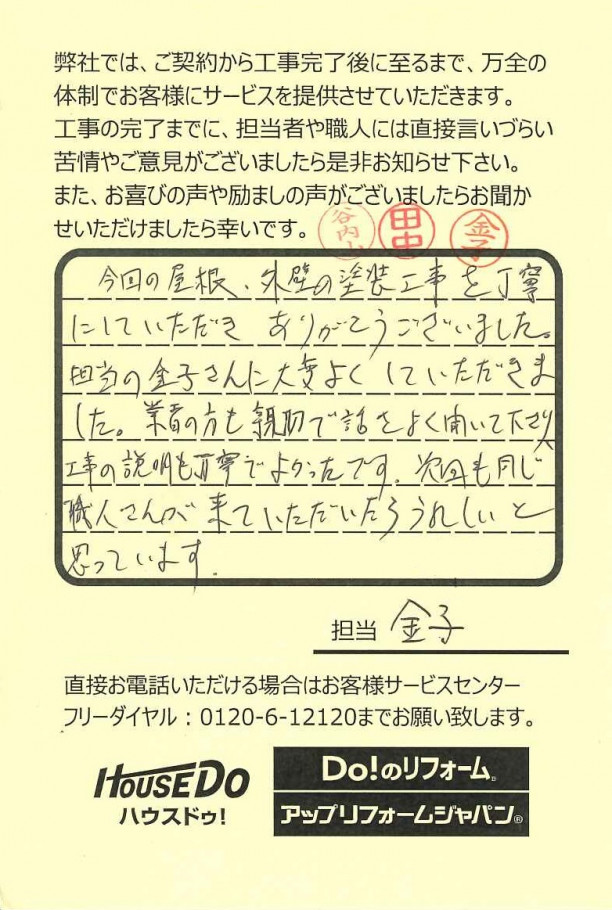 弊社では、ご契約から工事完了後に至るまで、万全の
体制でお客様にサービスを提供させていただきます。
工事の完了までに、担当者や職人には直接言いづらい
苦情やご意見がございましたら是非お知らせ下さい。
また、お喜びの声や励ましの声がございましたらお聞か
せいただけましたら幸いです。
谷内山 田中 金子
今回の屋根、外壁の塗装工事を丁寧
にしていただき ありがとうございました。
担当の金子さんに大変よくしていただきま
した。業者の方も親切で話をよく聞いて下さり
工事の説明も丁寧でよかったです。次回も同じ
職人さんが来ていただいたらうれしいと
思っています.
担当 金子
直接お電話いただける場合はお客様サービスセンター
フリーダイヤル：0120-6-12120までお願い致します。
HOUSEDO
ハウスドゥ!
Do!のリフォーム®
アップリフォームジャパン®